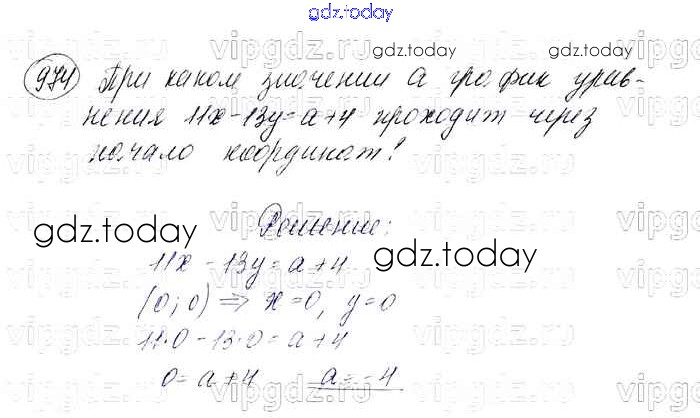 gdz.today
974 При каком значении a график урав-
нения 11x-13y=a+4 проходит через
начало координат?
Решение:
11x - 13y = a+4
(0; 0) ⇒ x=0, y=0
11·0-13·0=a+4
0=a+4 a=-4
gdz.today
gdz.today
gdz.today
gdz.today
vipgdz.ru